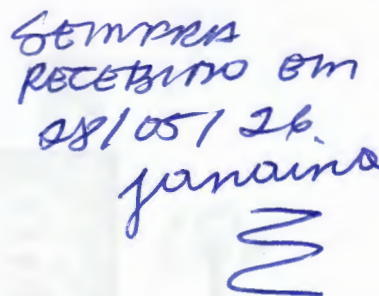 SEMPRA
RECEBIDO em
28/05/26
janaina